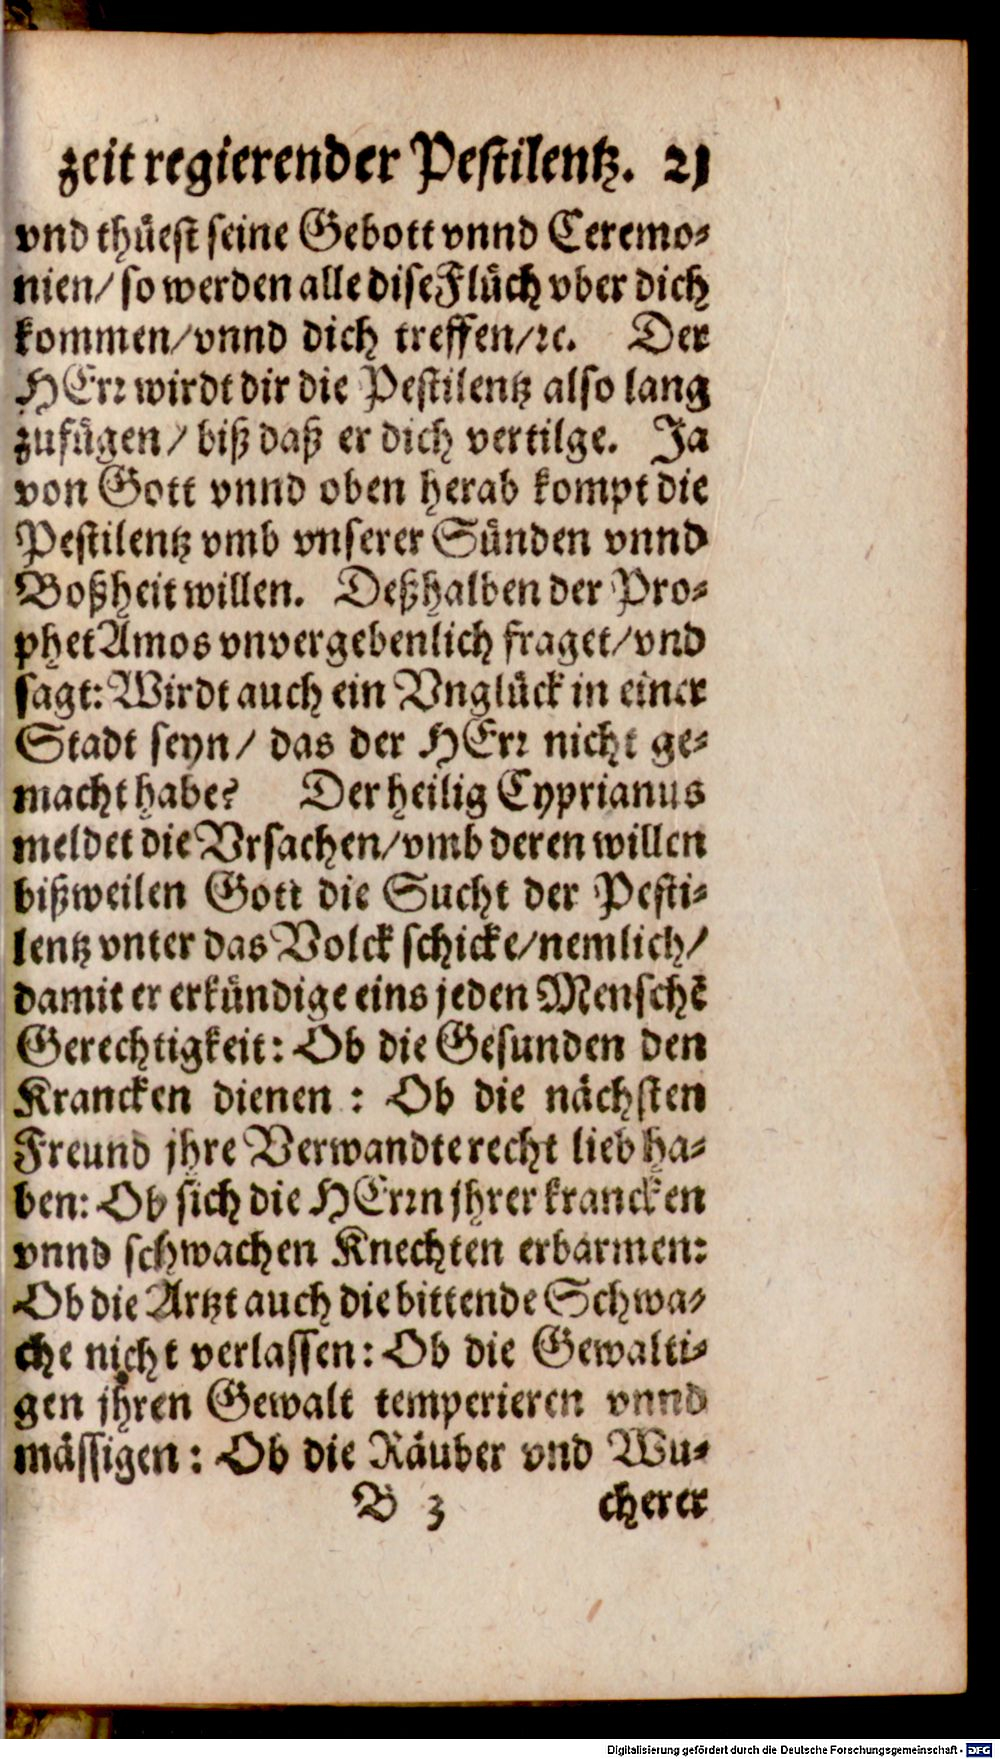 zeit regierender Pestilentz. 21
vnd thüest seine Gebott vnnd Ceremo-
nien/ so werden alle dise Flüch vber dich
kommen/ vnnd dich treffen/ ꝛc. Der
HErꝛ wirdt dir die Pestilentz also lang
zufügen/ biß daß er dich vertilge. Ja
von Gott vnnd oben herab kompt die
Pestilentz vmb vnserer Sünden vnnd
Boßheit willen. Deßhalben der Pro-
phet Amos vnvergebenlich fraget/ vnd
sagt: Wirdt auch ein Vnglück in einer
Stadt seyn/ das der HErꝛ nicht ge-
macht habe? Der heilig Cyprianus
meldet die Vrsachen/ vmb deren willen
bißweilen Gott die Sucht der Pesti-
lentz vnter das Volck schicke/ nemlich/
damit er erkündige eins jeden Menschẽ
Gerechtigkeit: Ob die Gesunden den
Krancken dienen: Ob die nächsten
Freund jhre Verwandte recht lieb ha-
ben: Ob sich die HErꝛn jhrer krancken
vnnd schwachen Knechten erbarmen:
Ob die Artzt auch die bittende Schwa-
che nicht verlassen: Ob die Gewalti-
gen jhren Gewalt temperieren vnnd
mässigen: Ob die Räuber vnd Wu-
B 3 cherer
Digitalisierung gefördert durch die Deutsche Forschungsgemeinschaft - DFG